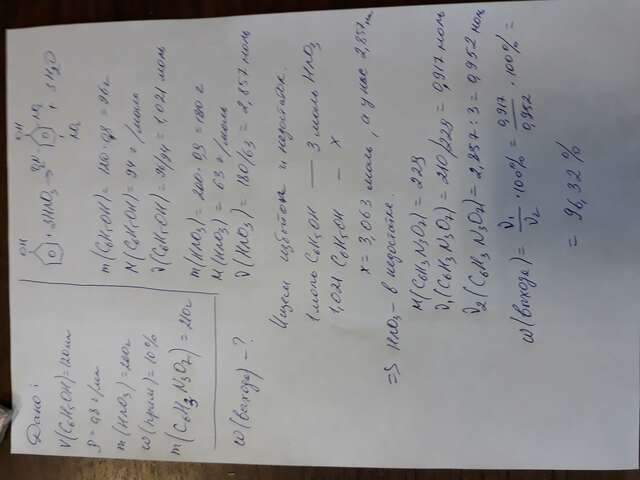 Дано:
V(C6H5OH) = 120 мл
ρ = 0,8 г/мл
m(HNO3) = 200 г
ω(прим) = 10%
m(C6H3N3O7) = 210 г
ω(выхода) - ?
OH
+ 3HNO3 →
OH
NO2
NO2
+ 3H2O
m(C6H5OH) = 120 · 0,8 = 96 г
M(C6H5OH) = 94 г/моль
ν(C6H5OH) = 96/94 = 1,021 моль
m(HNO3) = 200 · 0,9 = 180 г
M(HNO3) = 63 г/моль
ν(HNO3) = 180/63 = 2,857 моль
Ищем избыток и недостаток.
1 моль C6H5OH — 3 моль HNO3
1,021 C6H5OH — x
x = 3,063 моль, а у нас 2,857 моль
=> HNO3 - в недостатке.
M(C6H3N3O7) = 229
ν1(C6H3N3O7) = 210/229 = 0,917 моль
ν2(C6H3N3O7) = 2,857 : 3 = 0,952 моль
ω(выхода) = ν1/ν2 · 100% = 0,917/0,952 · 100% =
= 96,32 %